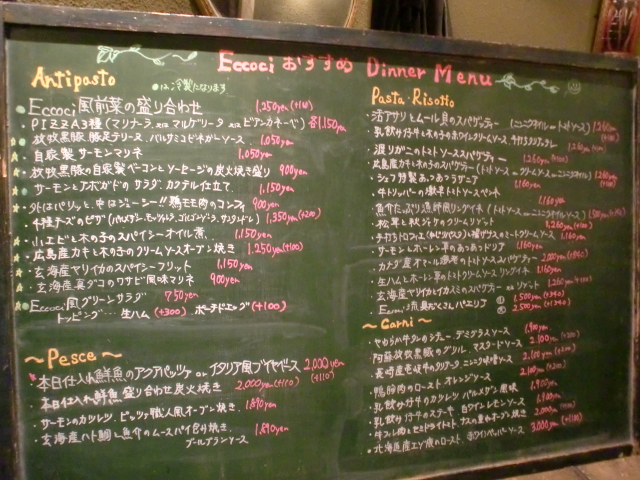 Eccoci おすすめ Dinner Menu
Antipasto
●は、冷製になります
Eccoci風前菜の盛り合わせ 1,250yen (+160)
PIZZA3種 (マリナーラ、or マルゲリータ or ビアンカネーベ) 各1,150yen
放牧黒豚、豚足テリーヌ、バルサミコビネガーソース 1,050yen
自家製 サーモンマリネ 1,050yen
放牧黒豚の自家製ベーコンとソーセージの炭火焼き盛り 900yen
サーモンとアボガドのサラダ、カクテル仕立て 1,150yen
外はパリッと、中はジューシー!!鶏モモ肉のコンフィ 900yen
4種チーズのピザ 1,350yen (+200)
小エビと木の子のスパイシーオイル煮 1,150yen
広島産カキと木の子のクリームソースオーブン焼き 1,250yen (+110)
玄海産ヤリイカのスパイシーフリット 1,150yen
玄海産真ダコのワサビ風味マリネ 900yen
Eccoci風グリーンサラダ 750yen
トッピング… 生ハム (+300) ポーチドエッグ (+100)
~ Pesce ~
本日仕入れ鮮魚のアクアパッツァ or イタリア風ブイヤベース 2,000yen (+110)
本日仕入れ鮮魚 盛り合わせ炭火焼き 2,000yen (+110)
サーモンのカツレツ、ピッツァ職人風オーブン焼き 1,890yen
玄海産ハト鯛と魚介のムースパイ包み焼き 1,890yen
ブールブランソース
Pasta・Risotto
活アサリとムール貝のスパゲッティー (ニンニクオイル or トマトソース) 1,260yen
乳飲み仔牛と木の子のホワイトクリームソース 1,260yen
渡りガニのトマトソーススパゲッティー 1,260yen
広島産カキと木の子のスパゲッティー (トマト or クリーム or ニンニクオイル) 1,260yen
シェフ特製あつあつラザニア 1,160yen
1,160yen
魚介たっぷり漁師風リングイネ (トマトソース or ニンニクオイルソース) 1,500yen
松茸と秋ジャケのクリームリゾット 1,260yen
サーモンとホーレン草のあつあつドリア 1,160yen
カナダ産オマール海老のトマトソーススパゲッティ 2,000yen
生ハムとホーレン草のトマトクリームソース リングイネ 1,160yen
玄海産ヤリイカとイカスミのスパゲッティ or リゾット 1,260yen
Eccoci風具だくさんパエリア 1,500yen
2,500yen
~ Carni ~
やわらか牛タンのシチュー デミグラスソース 1,900yen
阿蘇放牧黒豚のグリル、マスタードソース 2,100yen
2,100yen
鴨胸肉のロースト オレンジソース 2,100yen
乳飲み仔牛のカツレツ パルメザン風味 1,900yen
乳飲み仔牛のステーキ 白ワインレモンソース 1,900yen
牛フィレ肉とセミドライトマト、ナスの重ねオーブン焼き 2,000yen
北海道産エゾ鹿のロースト ホワイトペッパーソース 3,000yen